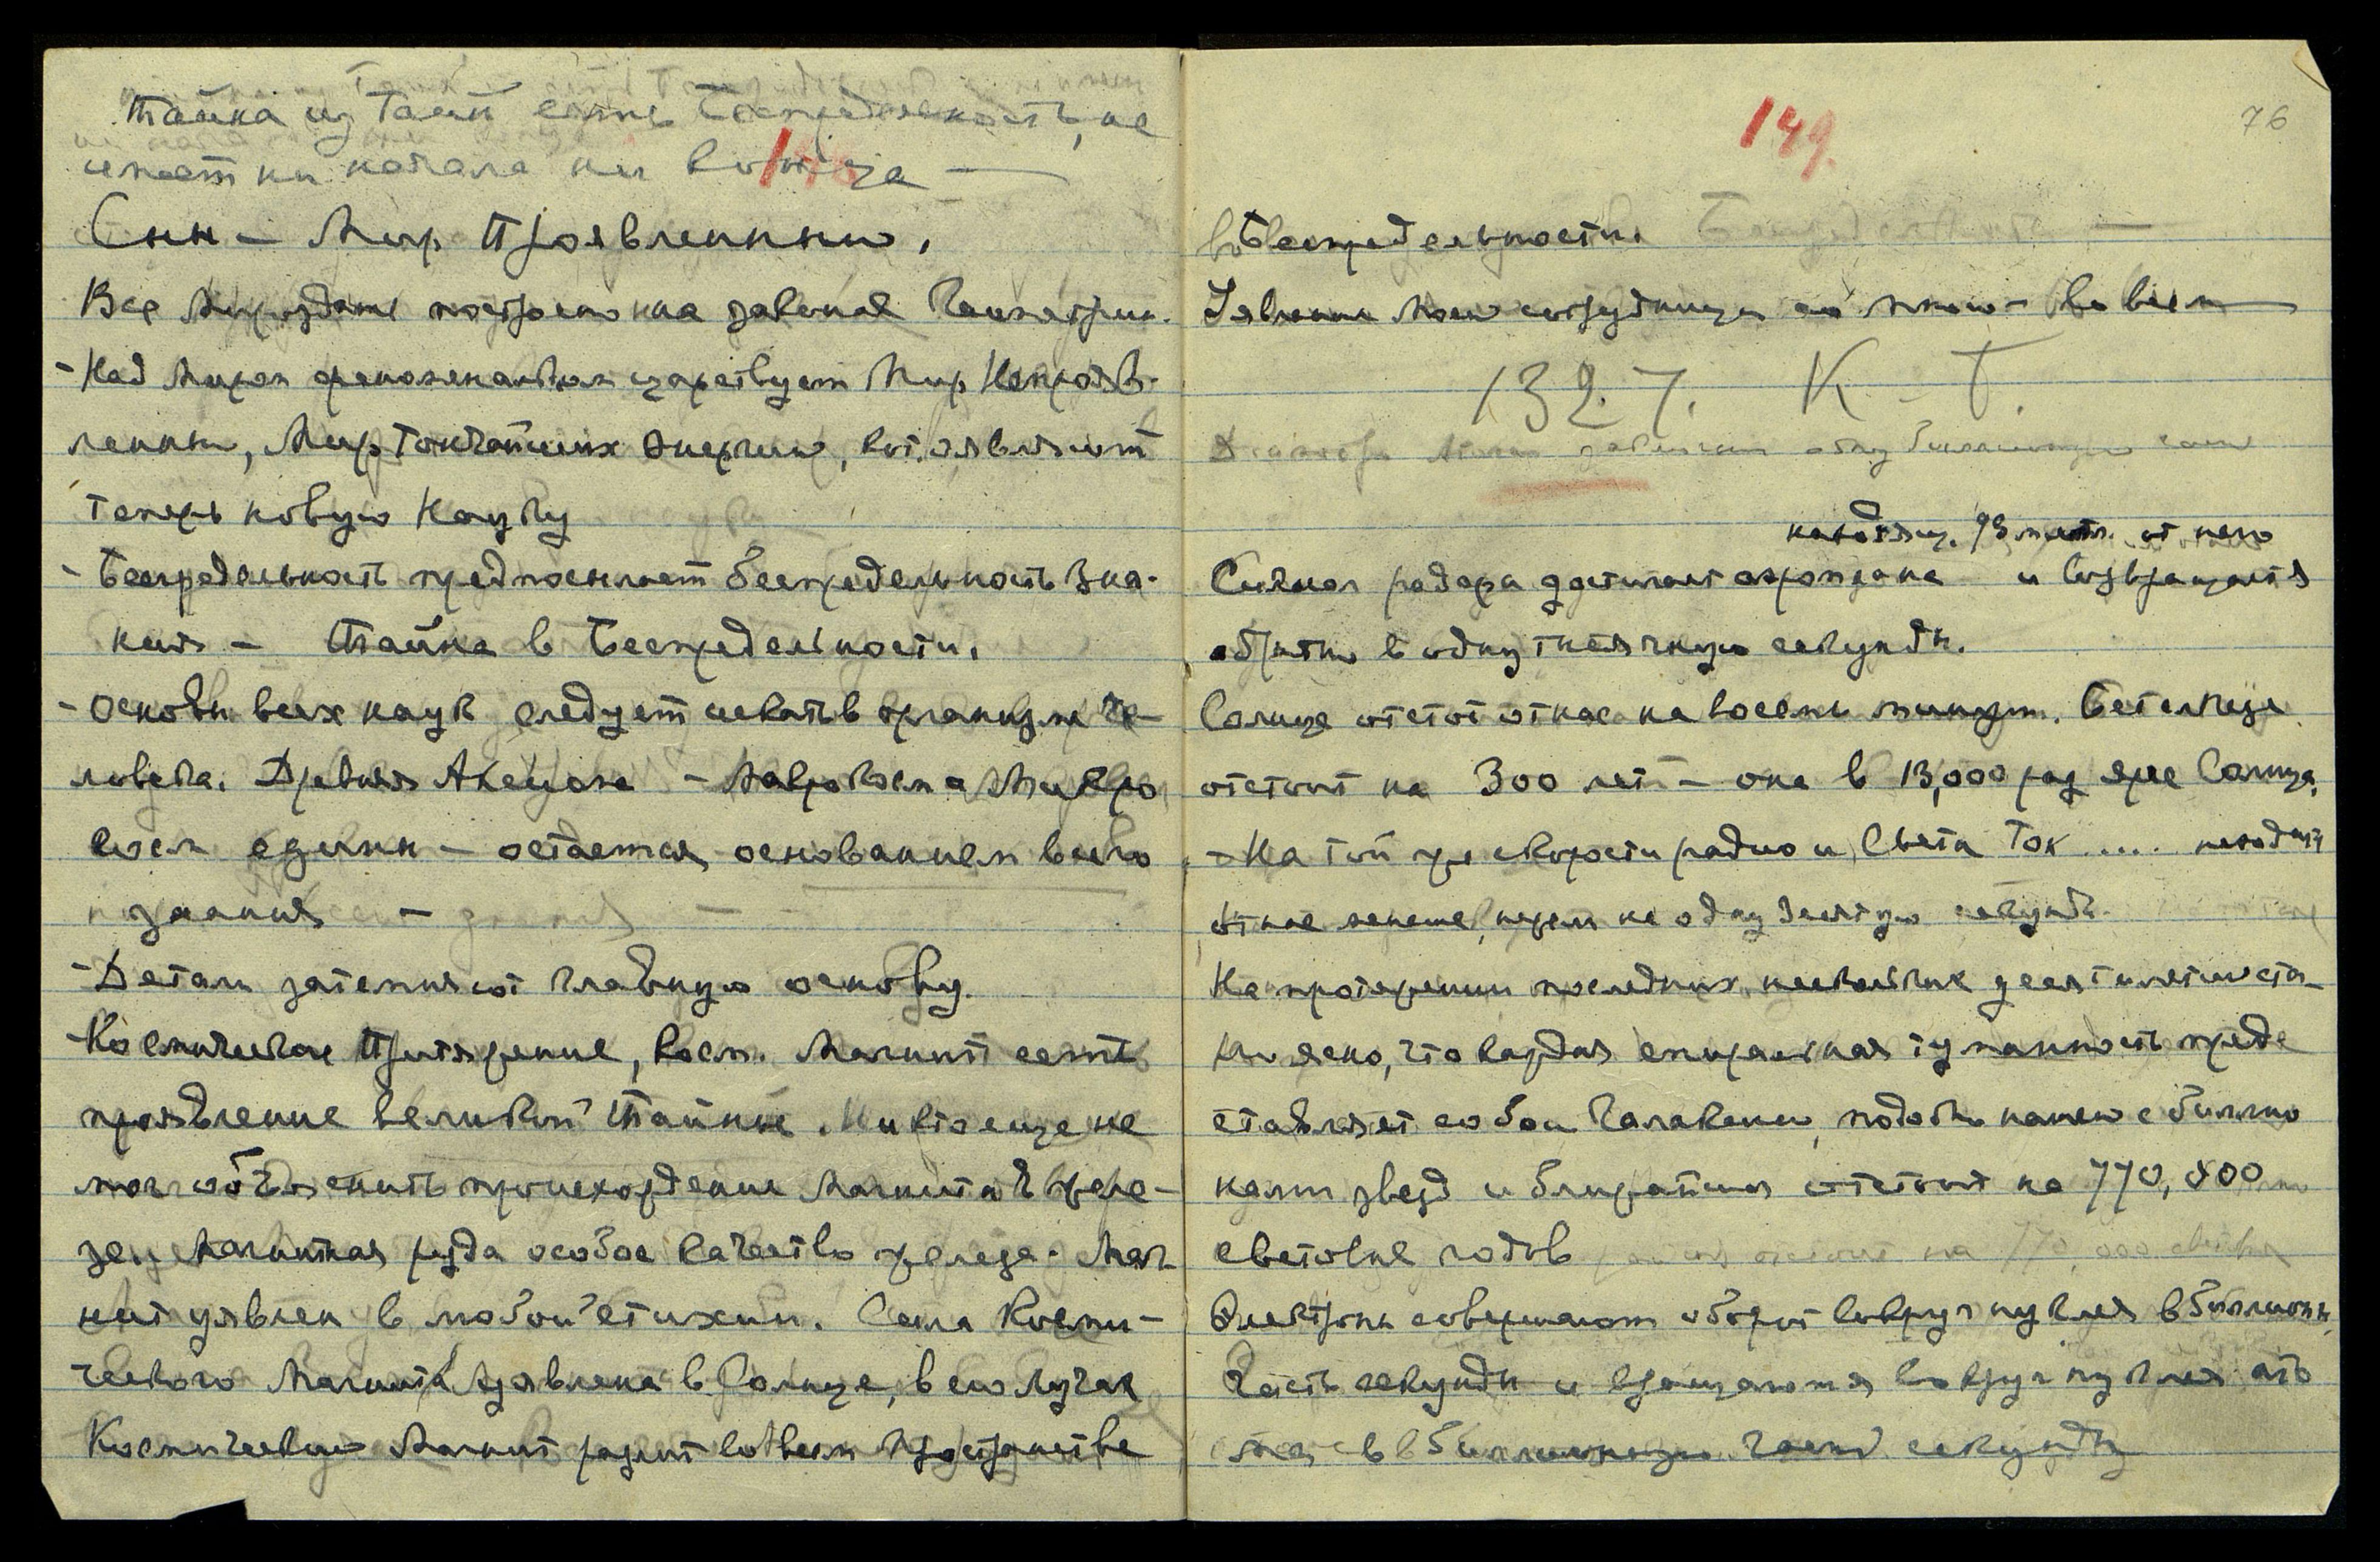 Тайна из Тайн есть Беспредельность, не
имеет ни начала ни конца —
Сын — Мир Проявленный.
Все Мироздание построено на законе Геометрии.
- Над Миром феноменальным царствует Мир Непрояв-
ленный, Мир Тончайших Энергий, кот. являют
теперь новую Науку
- Беспредельность предпосылает беспредельность Зна-
ния — Тайна в Беспредельности.
- Основы всех наук следует искать в организме че-
ловека. Древняя Аксиома — Макрокосм и Микро
косм едины — остается основанием всего
знания —
- Детали затемняют главную основу.
- Космическое Притяжение, косм. Магнит есть
проявление великой Тайны. Никто еще не
мог объяснить происхождение Магнита в желе-
зе, Магнитная руда особое качество железа. Маг
нит уявлен в любой стихии. Сила Косми-
ческого Магнита уявлена в Солнце, в его лучах
Космический Магнит разлит во всем Пространстве
149.
76
в Беспредельности.
Уявление Моей сотрудницы со Мною — во всем —
1327. К - Т.
находящ. 93 милл. от него
Сигнал радара достигает аэроплана и возвращается
обратно в одну тысячную секунды.
Солнце отстоит от нас на восемь минут. Бетельгейзе
отстоит на 300 лет — она в 13,000 раз ярче Солнца.
- На той же скорости радио и Света Ток ..... находит
от нас меньше, нежели на одну десятую секунды.
На протяжении последних нескольких десятилетий ста-
ло ясно, что каждая спиральная туманность пред
ставляет собой Галаксию, подобно нашей с биллио
нами звезд и ближайшая отстоит на 770,800
световых годов
Электроны совершают оборот вокруг нуклея в биллион.
часть секунды и вращаются вокруг нуклея
в биллионную часть секунды